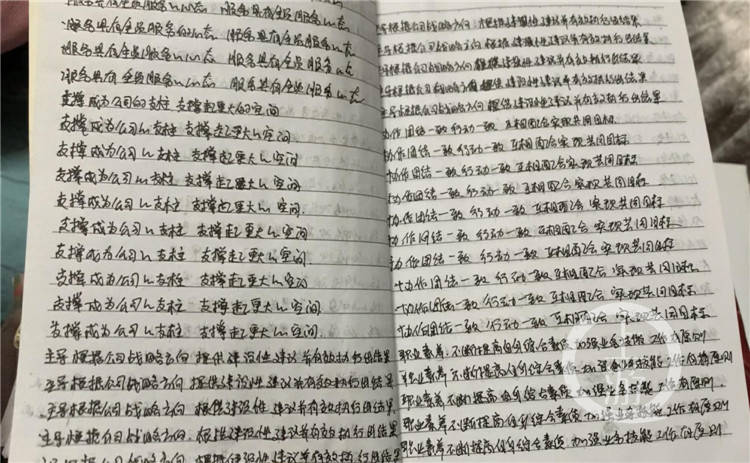 服务具有全员服务心态 服务具有全员服务心态
服务具有全员服务心态 服务具有全员服务心态
服务具有全员服务心态 服务具有全员服务心态
服务具有全员服务心态 服务具有全员服务心态
支撑成为公司的支柱 支撑起更大的空间
支撑成为公司的支柱 支撑起更大的空间
支撑成为公司的支柱 支撑起更大的空间
支撑成为公司的支柱 支撑起更大的空间
支撑成为公司的支柱 支撑起更大的空间
支撑成为公司的支柱 支撑起更大的空间
支撑成为公司的支柱 支撑起更大的空间
支撑成为公司的支柱 支撑起更大的空间
支撑成为公司的支柱 支撑起更大的空间
支撑成为公司的支柱 支撑起更大的空间
主导根据公司战略方向 提供建设性建议并有效执行团结果
主导根据公司战略方向 提供建设性建议并有效执行团结果
主导根据公司战略方向 提供建设性建议并有效执行团结果
主导根据公司战略方向 提供建设性建议并有效执行团结果
主导根据公司战略方向 提供建设性建议并有效执行
主导根据公司战略方向 提供建设性建议并有效执行团结果
主导根据公司战略方向 提供建设性建议并有效执行团结果
主导根据公司战略方向 提供建设性建议并有效执行团结果
主导根据公司战略方向 提供建设性建议并有效执行团结果
协作团结一致 行动一致 互相配合实现共同目标
协作团结一致 行动一致 互相配合实现共同目标
协作团结一致 行动一致 互相配合实现共同目标
协作团结一致 行动一致 互相配合实现共同目标
协作团结一致 行动一致 互相配合 实现共同目标
协作团结一致 行动一致 互相配合 实现共同目标
协作团结一致 行动一致 互相配合 实现共同目标
协作团结一致 行动一致 互相配合 实现共同目标
协作团结一致 行动一致 互相配合 实现共同目标
职业素养 不断提高自身综合素质 加强业务技能 工作有原则
职业素养 不断提高自身综合素质 加强业务技能 工作有原则
职业素养 不断提高自身综合素质 加强业务技能 工作有原则
职业素养 不断提高自身综合素质 加强业务技能 工作有原则
职业素养 不断提高自身综合素质 加强业务技能 工作有原则